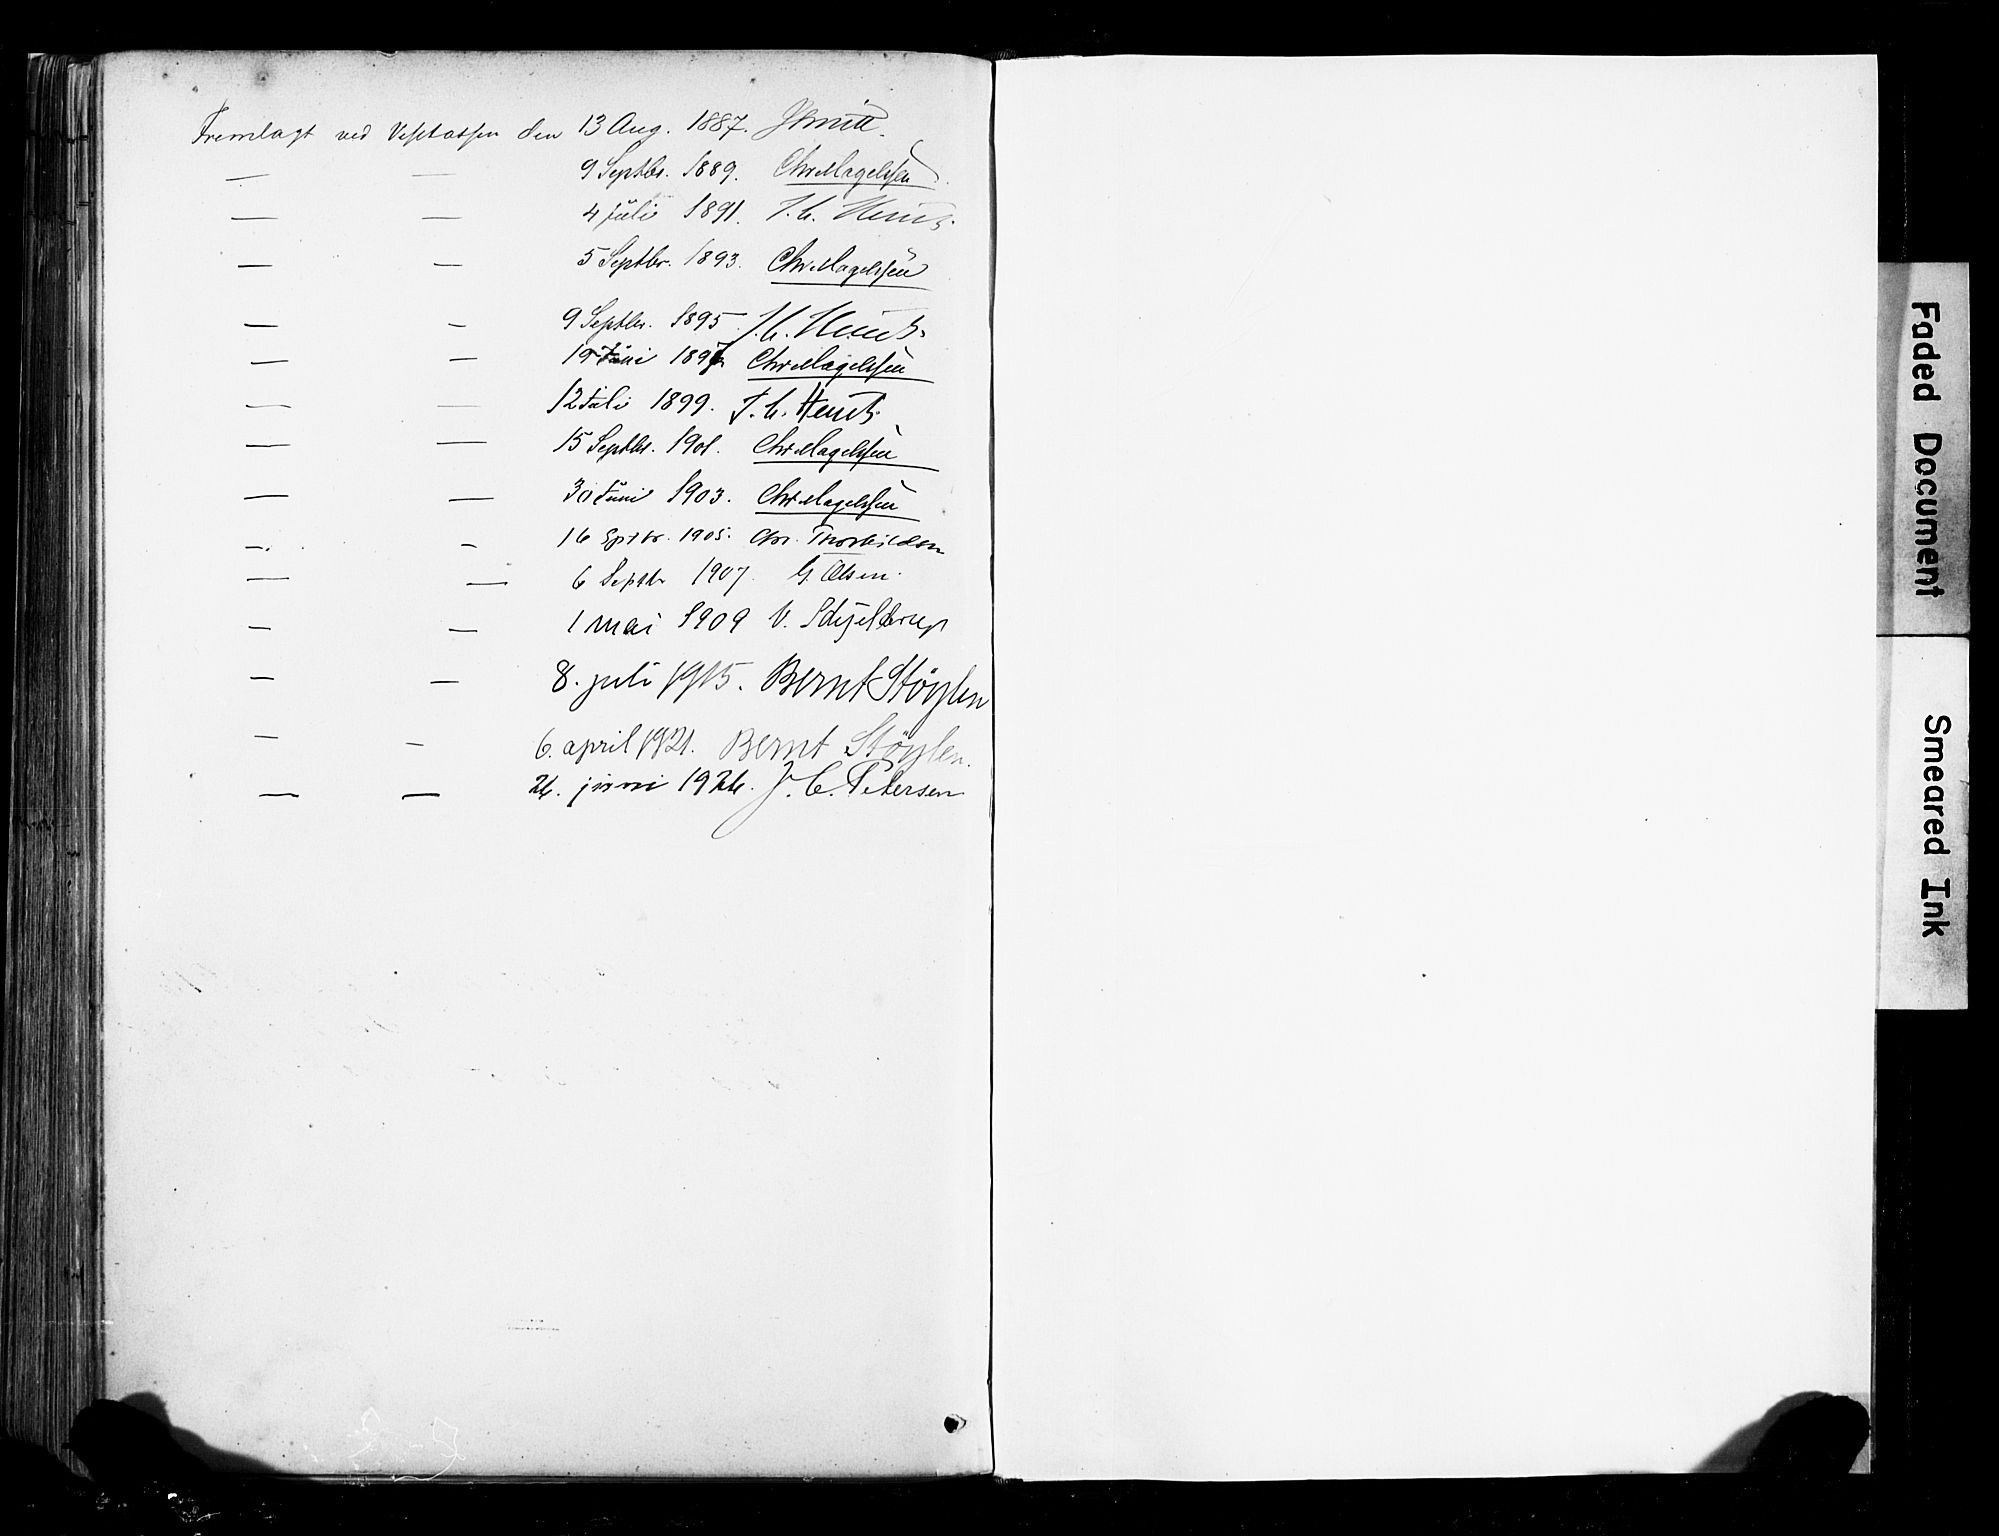 Fremlagt ved Visitatsen den 13 Aug. 1887. JSmitt.
— — 9 Septbr. 1889. Chr Magelssen
— — 4 Juli 1891. J. C. Heuch.
— — 5 Septbr. 1893. Chr Magelssen
— — 9 Septbr. 1895. J. C. Heuch.
— — 19 Juni 1897. Chr Magelssen
— — 12 Juli 1899. J. C. Heuch.
— — 15 Septbr. 1901. Chr Magelssen
— — 30 Juni 1903. Chr Magelssen
— — 16 Sptbr. 1905. Chr. Thorkildsen
— — 6 Septbr 1907. G. Olsen.
— — 1 mai 1909 V. Schjelderup
— — 8. juli 1915. Bernt Støylen
— — 6. april 1921. Bernt Støylen.
— — 26. juni 1926. J. C. Petersen
Faded Document
Smeared Ink